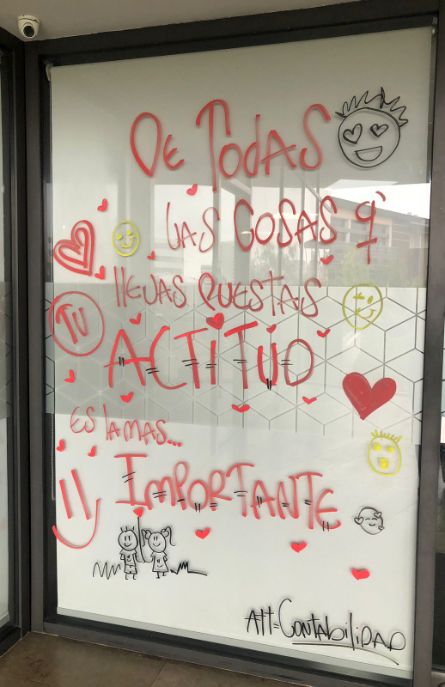 DE TODAS
LAS COSAS q'
LLEVAS PUESTAS
TU
ACTITUD
ES LA MAS...
IMPORTANTE
Att: Contabilidad